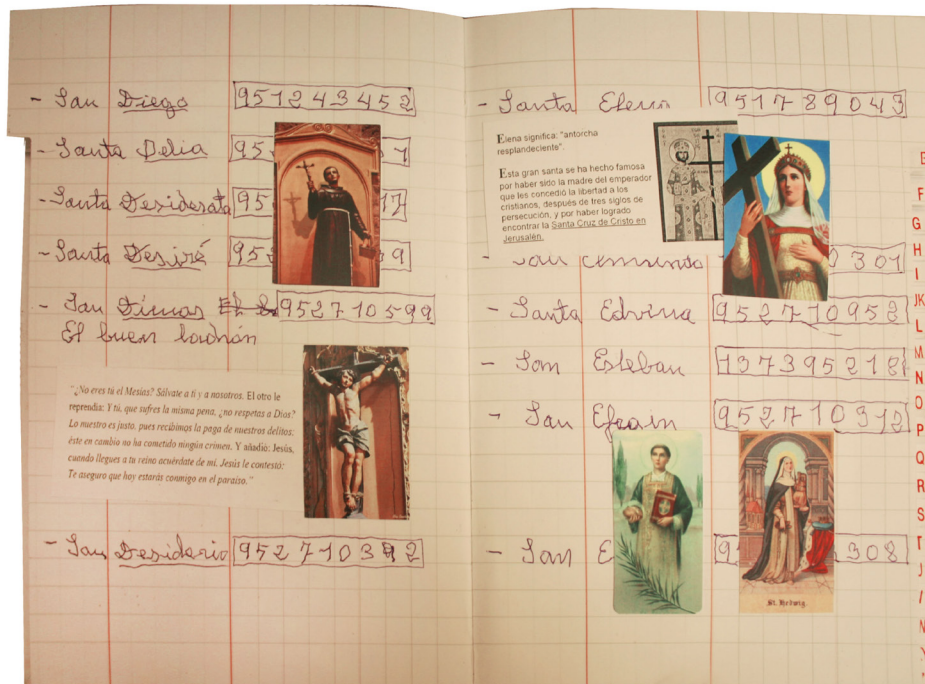 - San Diego 951243452
- Santa Delia 95
- Santa Desiderata 95 17
- Santa Desiré 95 9
- San Dimas 952710599
El buen ladrón
"¿No eres tú el Mesías? Sálvate a ti y a nosotros. El otro le
reprendía: Y tú, que sufres la misma pena, ¿no respetas a Dios?
Lo nuestro es justo, pues recibimos la paga de nuestros delitos;
éste en cambio no ha cometido ningún crimen. Y añadió: Jesús,
cuando llegues a tu reino acuérdate de mí. Jesús le contestó:
Te aseguro que hoy estarás conmigo en el paraíso."
- San Desiderio 9527103 2
- Santa Elena 951789043
Elena significa: "antorcha
resplandeciente".
Esta gran santa se ha hecho famosa
por haber sido la madre del emperador
que les concedió la libertad a los
cristianos, después de tres siglos de
persecución, y por haber logrado
encontrar la Santa Cruz de Cristo en
Jerusalén.
301
- Santa Edvina 952710952
- San Esteban 137395218
- San Efrain 952710312
- San E 9 308
St. Hedwig.
F
G
H
I
JK
L
M
N
O
P
Q
R
S